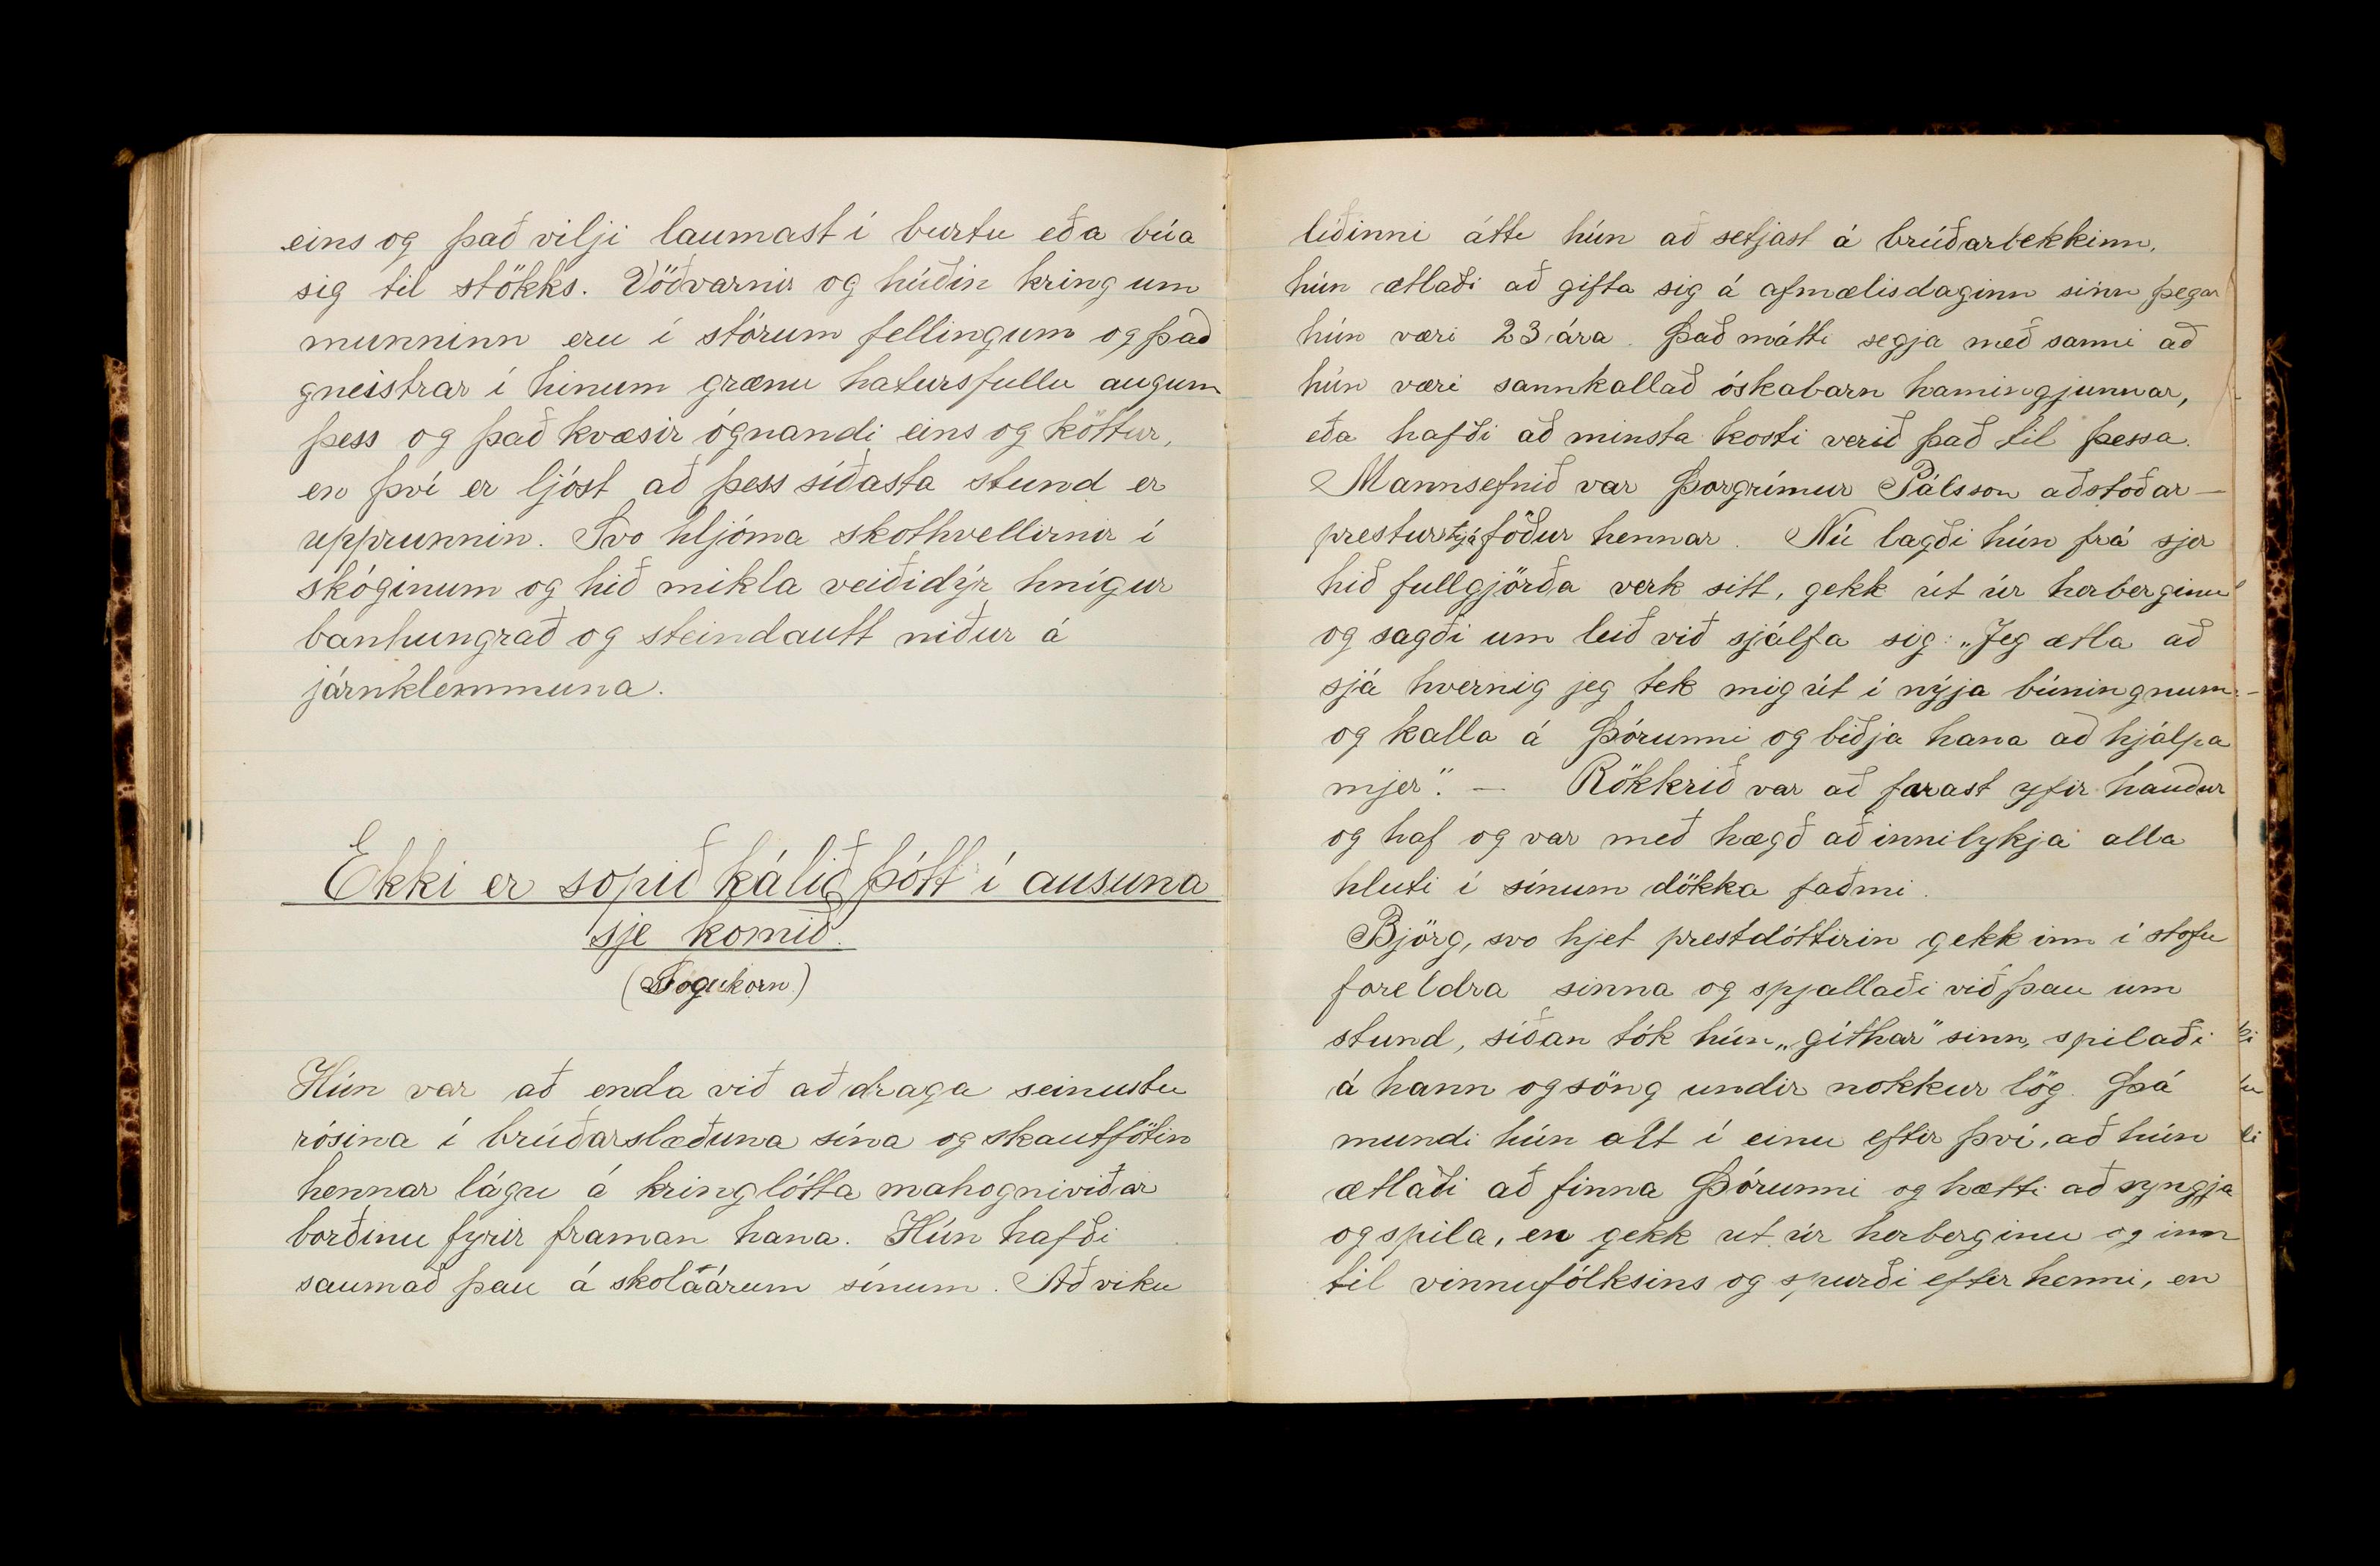 eins og það vilji laumast í burtu eða búa
sig til stökks. Vöðvarnir og húðin kring um
munninn eru í stórum fellingum og það
gneistrar í hinum grænu hatursfullu augum
þess og það kvæsir ógnandi eins og köttur,
en því er ljóst að þess síðasta stund er
upprunnin. Svo hljóma skothvellirnir í
skóginum og hið mikla veiðidýr hnígur
banhungrað og steindautt niður á
járnklemmuna.
Ekki er sopið kálið þótt í ausuna
sje komið.
(Sögukorn.)
Hún var að enda við að draga seinustu
rósina í brúðarslæðuna sína og skautfötin
hennar lágu á kringlótta mahogniviðar
borðinu fyrir framan hana. Hún hafði
saumað þau á skólaárum sínum. Að viku
liðinni átti hún að setjast á brúðarbekkinn,
hún ætlaði að gifta sig á afmælisdaginn sinn þegar
hún væri 23 ára. Það mátti segja með sanni að
hún væri sannkallað óskabarn hamingjunnar,
eða hafði að minsta kosti verið það til þessa.
Mannsefnið var Þorgrímur Pálsson aðstoðar-
prestur hjá föður hennar. Nú lagði hún frá sjer
hið fullgjörða verk sitt, gekk út úr herberginu
og sagði um leið við sjálfa sig: „Jeg ætla að
sjá hvernig jeg tek mig út í nýja búningnum -
og kalla á Þórunni og biðja hana að hjálpa
mjer". - Rökkrið var að farast yfir hauður
og haf og var með hægð að innilykja alla
hluti í sínum dökka faðmi.
Björg, svo hjet prestdóttirin gekk inn í stofu
foreldra sinna og spjallaði við þau um
stund, síðan tók hún „gíthar" sinn, spilaði
á hann og söng undir nokkur lög. Þá
mundi hún alt í einu eftir því, að hún
ætlaði að finna Þórunni og hætti að syngja
og spila, en gekk út úr herberginu og inn
til vinnufólksins og spurði eftir henni, en